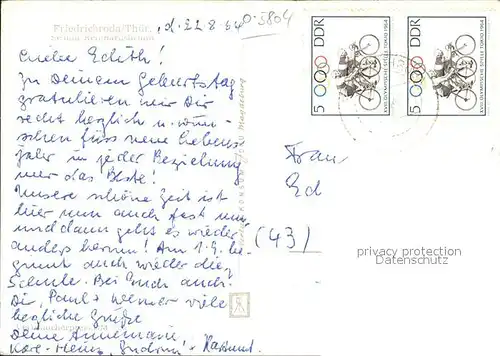 Friedrichroda/Thür.
d. 22.8.64
0-5804
Liebe Edith!
Zu Deinem Geburtstag
gratulieren wir Dir
recht herzlich u. wün-
schen fürs neue Lebens-
jahr in jeder Beziehung
nur das Beste!
Unsere schöne Zeit ist
hier nun auch fast um
und dann geht es wieder
anders herum! Am 1.9. be-
ginnt auch wieder die
Schule. Bei Euch auch?
Dir, Paul + Werner viele
herzliche Grüße
Deine Annemarie
Karl-Heinz, + Hartmut.
KONSUM Magdeburg
5 DDR
XVIII. OLYMPISCHE SPIELE TOKIO 1964
5 DDR
XVIII. OLYMPISCHE SPIELE TOKIO 1964
Frau
Ed
(43)
privacy protection
Datenschutz